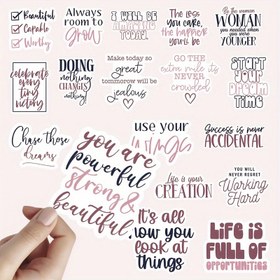 Beautiful
Capable
Worthy
Always
room to
grow
I WILL DO
AMAZING
TODAY!
The less
you care,
the happier
you'll be
Be the
WOMAN
you needed when
you were
YOUNGER
celebrate
every
tiny
victory
DOING
nothing
CHANGES
nothing
Make today so
great
tommorow will be
jealous
GO THE
extra mile it's
NEVER
crowded
START
YOUR
DREAM
TIME
Chase those
dreams
use your
wings
Success is never
ACCIDENTAL
you are
powerful
strong &
beautiful
Life is your
CREATION
YOU WILL
NEVER REGRET
Working
Hard
It's all
how you
look at
things
LIFE IS
FULL OF
OPPORTUNITIES